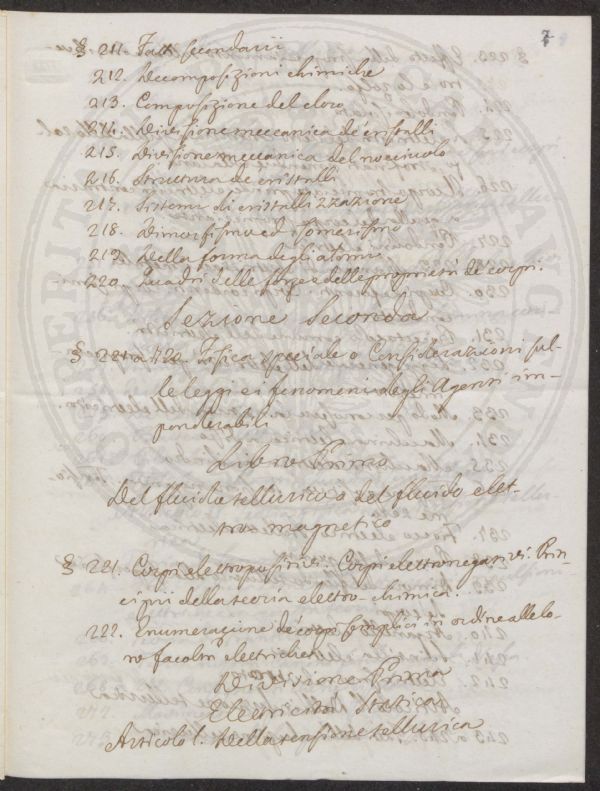 7
§ 211. Fatti secondarii
212. Decomposizioni chimiche
213. Composizione del cloro
214. Divisione meccanica de' cristalli
215. Divisione meccanica del nocciuolo
216. Struttura de' cristalli
217. Sistema di cristallizzazione
218. Dimorfismo ed Isomerismo
219. Della forma degli atomi.
220. Quadri delle forze e delle proprietà de' corpi.
Sezione Seconda
§ 221 a 720. Fisica speciale o Considerazioni sul-
le leggi e i fenomeni degli Agenti im-
ponderabili
Libro Primo
Del fluido tellurico o del fluido elet-
tro magnetico
§ 221. Corpi elettropositivi. Corpi elettronegativi. Prin-
cipii della teoria elettro-chimica.
222. Enumerazione de' corpi semplici in ordine alle lo-
ro facoltà elettriche
Divisione Prima
Elettricità Statica
Articolo 1. Della tensione tellurica